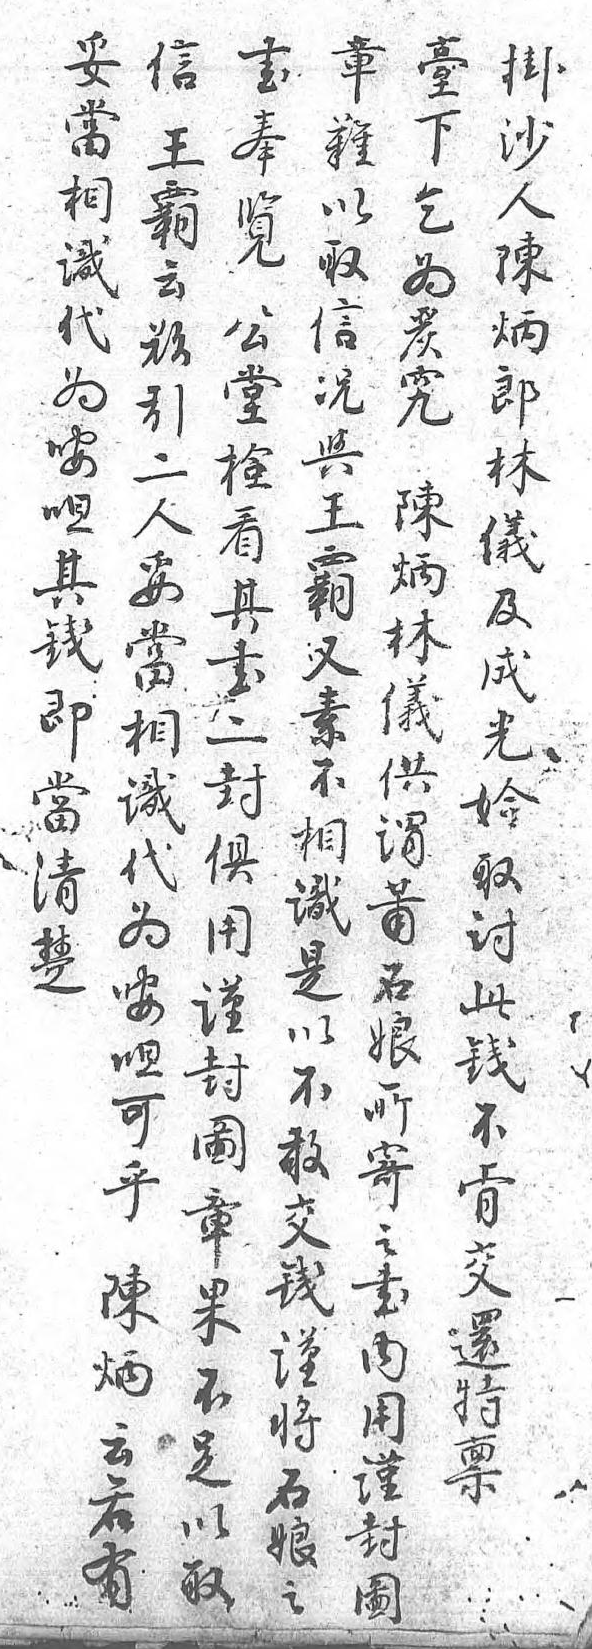 掛沙人陳炳郎林儀及成光姶取討此錢不肯交還特禀
臺下乞為察究　陳炳林儀供謂莆石娘所寄之書內用謹封圖
章難以取信况與王霸又素不相識是以不敢交錢謹將石娘之
書奉覽　公堂檢看其書二封俱用謹封圖章果不足以取
信　王霸云欲引二人妥當相識代為唆呾可乎　陳炳云若有
妥當相識代為唆呾其錢即當清楚